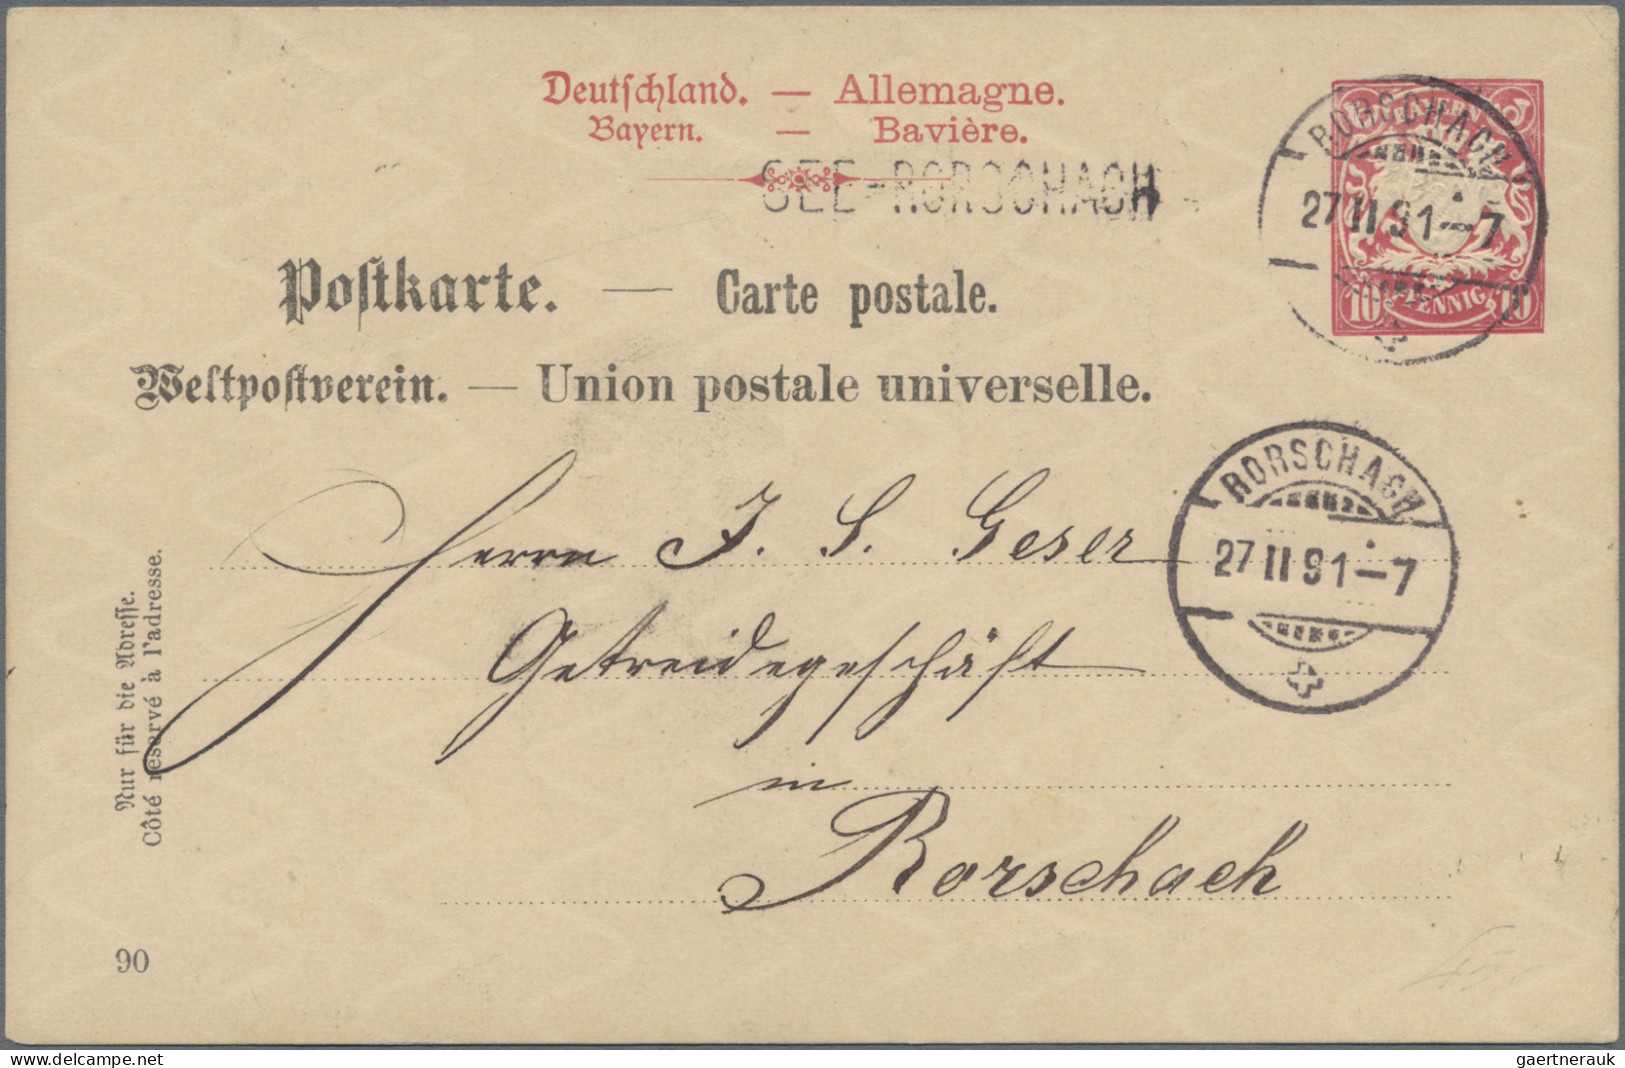 Deutschland. — Allemagne.
Bayern. — Bavière.
SEE-RORSCHACH
BAYERN
10 PFENNIG 10
RORSCHACH
27 II 91-7
Postkarte. — Carte postale.
Weltpostverein. — Union postale universelle.
RORSCHACH
27 II 91-7
Herrn J. S. Geser
Getreidegeschäft
in
Rorschach
Nur für die Adresse.
Côté réservé à l'adresse.
90
the-saleroom.com
gaertnerauk